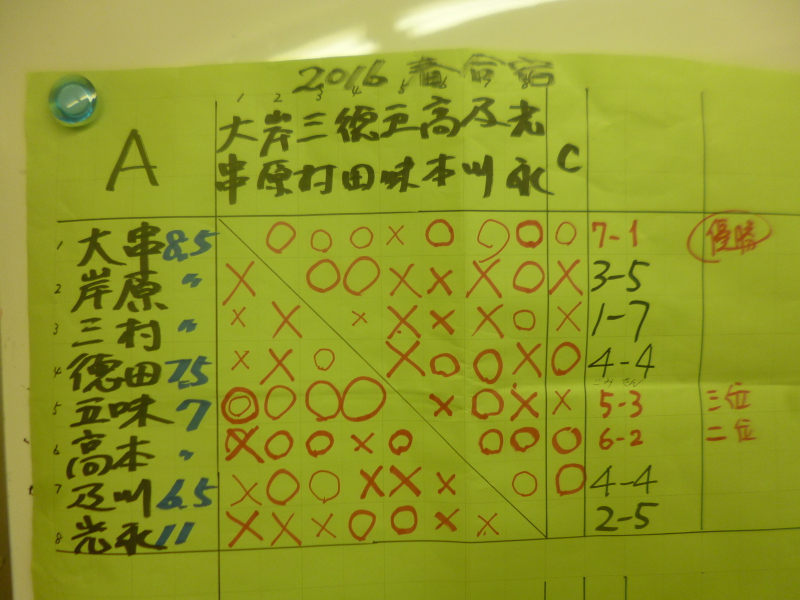 2016 春合宿
1 2 3 4 5 6 7 8
A 大岸三徳五高及光
串原村田味本川永 C
1 大串 8.5 ○ ○ ○ × ○ ○ ○ ○ 7-1 優勝
2 岸原 〃 × ○ ○ × × × ○ × 3-5
3 三村 〃 × × × × × × ○ × 1-7
4 徳田 7.5 × × ○ × ○ ○ × ○ 4-4
5 五味 7 ◎ ○ ○ ○ × ○ × × 5-3 三位
6 高本 〃 × ○ ○ × ○ ○ ○ ○ 6-2 二位
7 及川 6.5 × ○ ○ × × × ○ ○ 4-4
8 光永 11 × × × ○ ○ × × 2-5